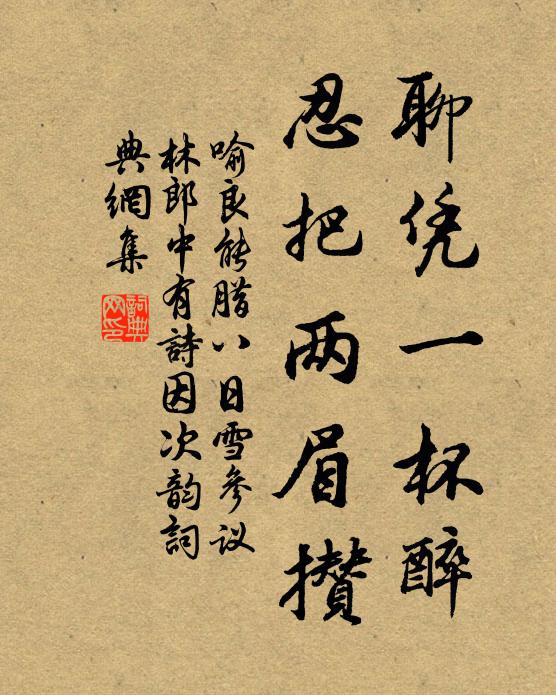 聊凭一杯醉
忍把两眉攒
喻良能腊八日雪参议
林郎中有詩因次韵詞
典網集
詞典网印